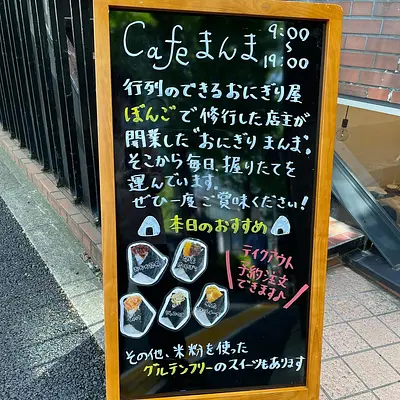 Cafe まんま 9:00
〜
19:00
行列のできるおにぎり屋
ぼんごで修行した店主が
開業した"おにぎり まんま"。
そこから毎日、握りたてを
運んでいます。
ぜひ一度ご賞味ください!
本日のおすすめ
テイクアウト
予約注文
できます♪
その他、米粉を使った
グルテンフリーのスイーツもあります